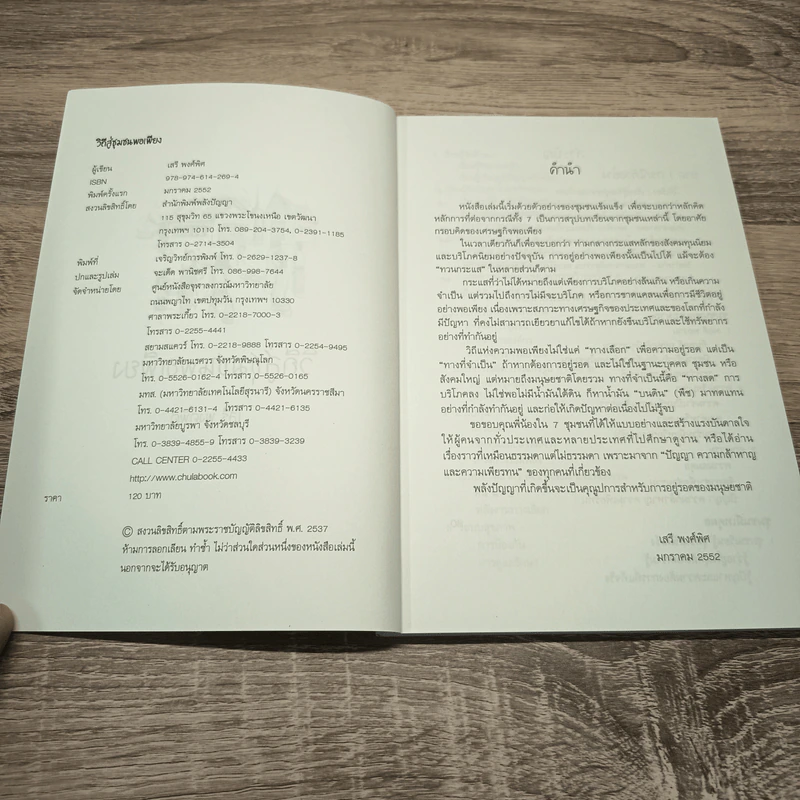 วิถีสู่ชุมชนพอเพียง
ผู้เขียน เสรี พงศ์พิศ
ISBN 978-974-614-269-4
พิมพ์ครั้งแรก มกราคม 2552
สงวนลิขสิทธิ์โดย สำนักพิมพ์พลังปัญญา
115 สุขุมวิท 65 แขวงพระโขนงเหนือ เขตวัฒนา
กรุงเทพฯ 10110 โทร. 089-204-3754, 0-2391-1185
โทรสาร 0-2714-3504
พิมพ์ที่ เจริญวิทย์การพิมพ์ โทร. 0-2629-1237-8
ปกและรูปเล่ม จะเด็ด พานิชศรี โทร. 086-998-7644
จัดจำหน่ายโดย ศูนย์หนังสือจุฬาลงกรณ์มหาวิทยาลัย
ถนนพญาไท เขตปทุมวัน กรุงเทพฯ 10330
ศาลาพระเกี้ยว โทร. 0-2218-7000-3
โทรสาร 0-2255-4441
สยามสแควร์ โทร. 0-2218-9888 โทรสาร 0-2254-9495
มหาวิทยาลัยนเรศวร จังหวัดพิษณุโลก
โทร. 0-5526-0162-4 โทรสาร 0-5526-0165
มทส. (มหาวิทยาลัยเทคโนโลยีสุรนารี) จังหวัดนครราชสีมา
โทร. 0-4421-6131-4 โทรสาร 0-4421-6135
มหาวิทยาลัยบูรพา จังหวัดชลบุรี
โทร. 0-3839-4855-9 โทรสาร 0-3839-3239
CALL CENTER 0-2255-4433
http://www.chulabook.com
ราคา 120 บาท
© สงวนลิขสิทธิ์ตามพระราชบัญญัติลิขสิทธิ์ พ.ศ. 2537
ห้ามการลอกเลียน ทำซ้ำ ไม่ว่าส่วนใดส่วนหนึ่งของหนังสือเล่มนี้
นอกจากจะได้รับอนุญาต
คำนำ
หนังสือเล่มนี้เริ่มด้วยตัวอย่างของชุมชนเข้มแข็ง เพื่อจะบอกว่าหลักคิด
หลักการที่ต่อจากกรณีทั้ง 7 เป็นการสรุปบทเรียนจากชุมชนเหล่านี้ โดยอาศัย
กรอบคิดของเศรษฐกิจพอเพียง
ในเวลาเดียวกันก็เพื่อจะบอกว่า ท่ามกลางกระแสหลักของสังคมทุนนิยม
และบริโภคนิยมอย่างปัจจุบัน การอยู่อย่างพอเพียงนั้นเป็นไปได้ แม้จะต้อง
"ทวนกระแส" ในหลายส่วนก็ตาม
กระแสที่ว่าไม่ได้หมายถึงแต่เพียงการบริโภคอย่างล้นเกิน หรือเกินความ
จำเป็น แต่รวมไปถึงการไม่มีจะบริโภค หรือการขาดแคลนเพื่อการมีชีวิตอยู่
อย่างพอเพียง เนื่องเพราะสภาวะทางเศรษฐกิจของประเทศและของโลกที่กำลัง
มีปัญหา ที่คงไม่สามารถเยียวยาแก้ไขได้ถ้าหากยังขืนบริโภคและใช้ทรัพยากร
อย่างที่ทำกันอยู่
วิถีแห่งความพอเพียงไม่ใช่แค่ "ทางเลือก" เพื่อความอยู่รอด แต่เป็น
"ทางที่จำเป็น" ถ้าหากต้องการอยู่รอด และไม่ใช่ในฐานะบุคคล ชุมชน หรือ
สังคมใหญ่ แต่หมายถึงมนุษยชาติโดยรวม ทางที่จำเป็นนี้คือ "ทางลด" การ
บริโภคลง ไม่ใช่พอไม่มีน้ำมันใต้ดิน ก็หาน้ำมัน "บนดิน" (พืช) มาทดแทน
อย่างที่กำลังทำกันอยู่ และก่อให้เกิดปัญหาต่อเนื่องไปไม่รู้จบ
ขอขอบคุณพี่น้องใน 7 ชุมชนที่ได้ให้แบบอย่างและสร้างแรงบันดาลใจ
ให้ผู้คนจากทั่วประเทศและหลายประเทศที่ไปศึกษาดูงาน หรือได้อ่าน
เรื่องราวที่เหมือนธรรมดาแต่ไม่ธรรมดา เพราะมาจาก "ปัญญา ความกล้าหาญ
และความเพียรทน" ของทุกคนที่เกี่ยวข้อง
พลังปัญญาที่เกิดขึ้นจะเป็นคุณูปการสำหรับการอยู่รอดของมนุษยชาติ
เสรี พงศ์พิศ
มกราคม 2552